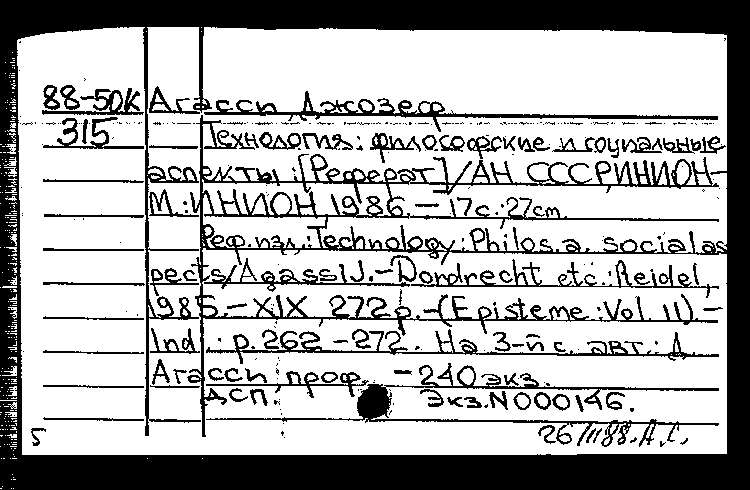 88-50К Агасси, Джозеф.
315 Технология: философские и социальные
аспекты: [Реферат]/АН СССР, ИНИОН-
М.: ИНИОН, 1986. – 17с.; 27cm.
Реф. изд.: Technology: Philos. a. social as
pects/Agassi J. – Dordrecht etc.: Reidel,
1985. – XIX, 272p. – (Episteme: Vol. 11). –
Ind.: p. 262-272. На 3-й с. авт.: Д.
Агасси, проф. – 240 экз.
ДСП. Экз. N000146.
5 26/II 88. А.С.